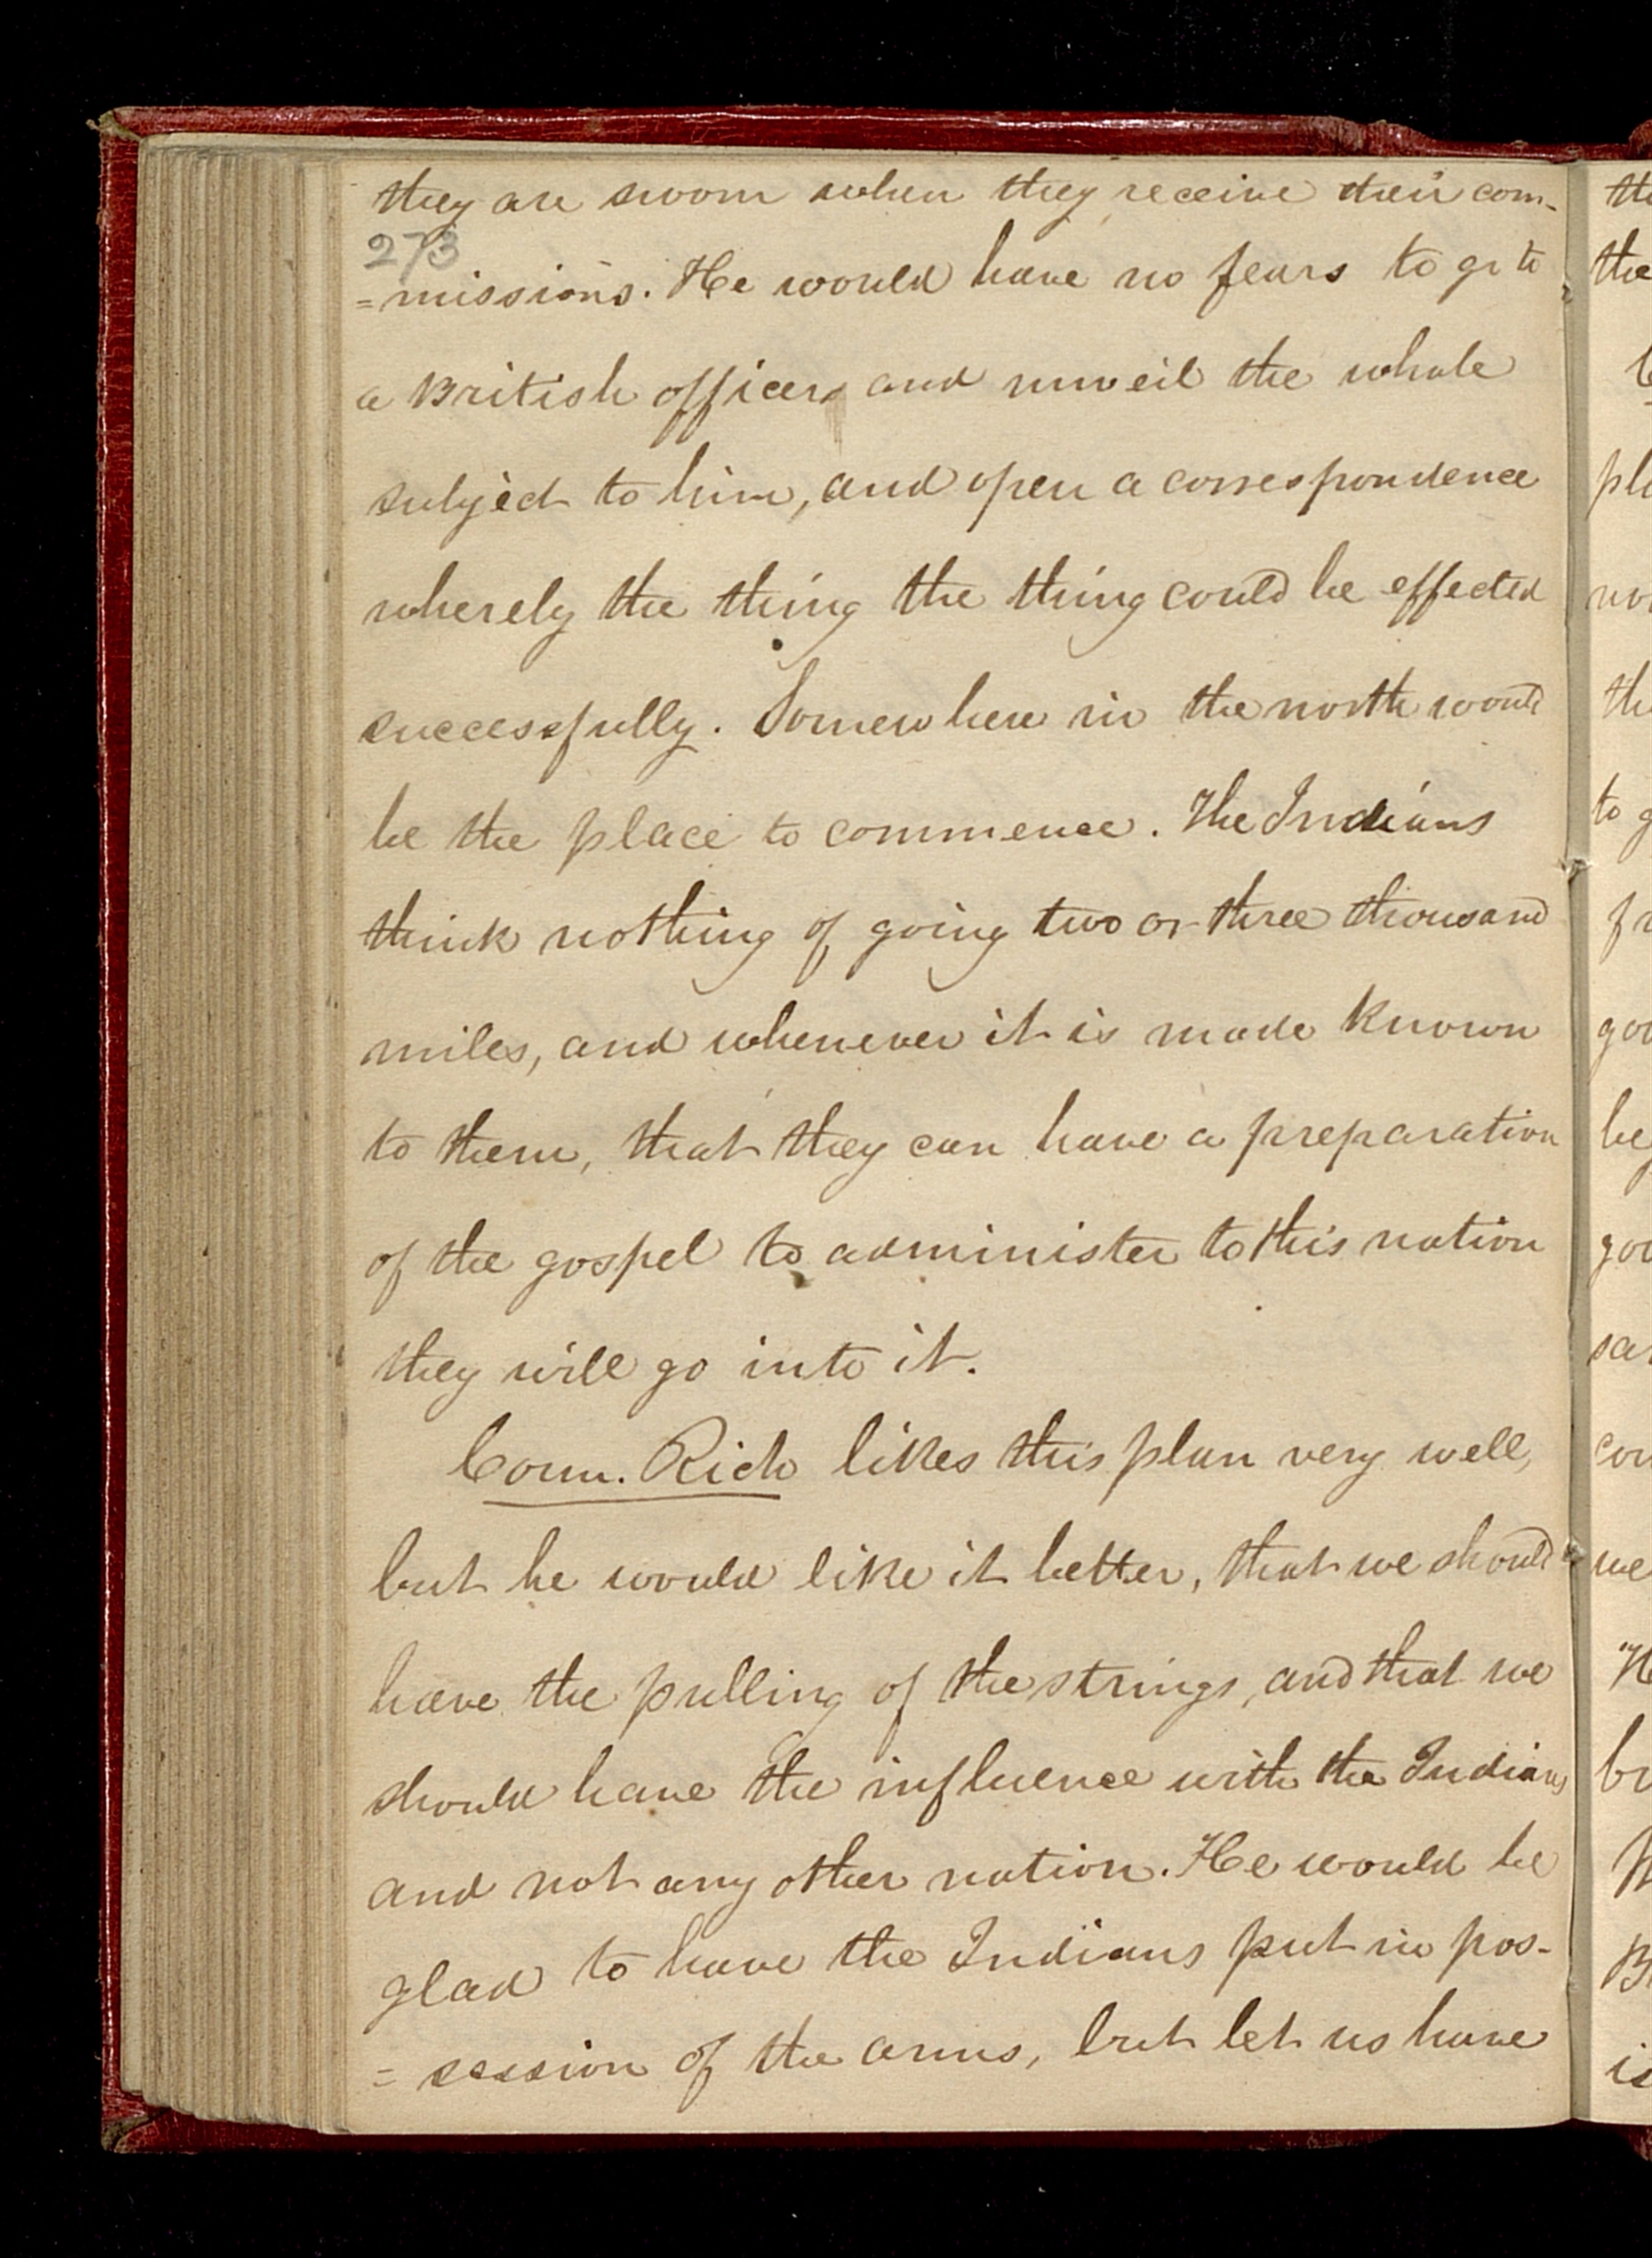 they are sworn when they receive their com-
273
=missions. He would have no fears to go to
a British officer and unveil the whole
subject to him, and open a correspondence
whereby the thing the thing could be effected
successfully. Somewhere in the north would
be the place to commence. The Indians
think nothing of going two or three thousand
miles, and whenever it is made known
to them, that they can have a preparation
of the gospel to administer to this nation
they will go into it.
Coun. Rich likes this plan very well,
but he would like it better, that we should
have the pulling of the strings, and that we
should have the influence with the Indians
and not any other nation. He would be
glad to have the Indians put in pos-
=session of the arms, but let us have